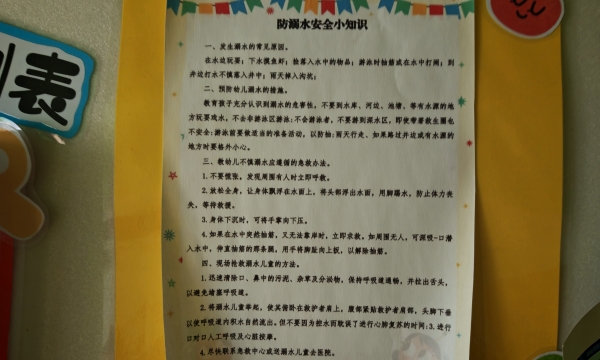 防溺水安全小知识
一、发生溺水的常见原因。
在水边玩耍；下水摸鱼虾；捡落入水中的物品；游泳时抽筋或在水中打闹；到
井边打水不慎落入井中；雨天掉入沟坑；
二、预防幼儿溺水的措施。
教育孩子充分认识到溺水的危害性，不要到水库、河边、池塘、等有水源的地
方玩耍戏水，不会去非游泳区游泳；不会游泳者，不要游到深水区，即使带着救生圈也
不安全；游泳前要做适当的准备活动，以防抽；雨天行走、如果路过井边或有水源的
地方时要格外小心。
三、教幼儿不慎溺水应遵循的急救办法。
1.不要慌张，发现周围有人时立即呼救。
2.放松全身，让身体飘浮在水面上，将头部浮出水面，用脚踢水，防止体力丧
失，等待救援。
3.身体下沉时，可将手掌向下压。
4.如果在水中突然抽筋，又无法靠岸时，立即求救。如周围无人，可深吸一口潜
入水中，伸直抽筋的那条腿，用手将脚趾向上扳，以解除抽筋。
四、现场抢救溺水儿童的方法。
1.迅速清除口、鼻中的污泥、杂草及分泌物，保持呼吸道通畅，并拉出舌头，
以避免堵塞呼吸道。
2.将溺水儿童举起，使其俯卧在救护者肩上，腹部紧贴救护者肩部，头脚下垂
以使呼吸道内积水自然流出。但不要因为控水而耽误了进行心肺复苏的时间；3.进行
口对口人工呼吸及心脏按摩。
4.尽快联系急救中心或送溺水儿童去医院。
表